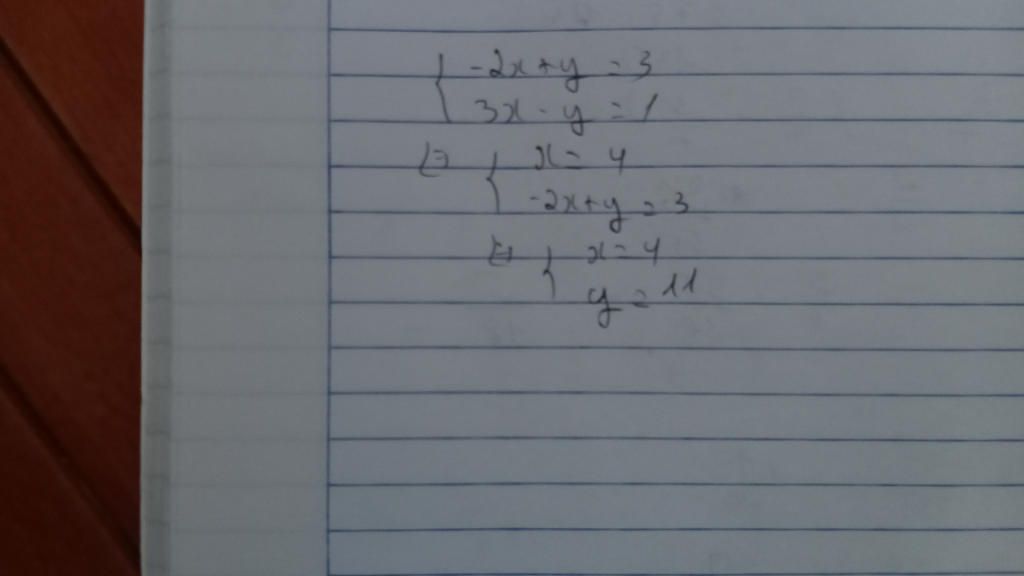 { -2x + y = 3
3x - y = 1
⇔ { x = 4
-2x + y = 3
⇔ { x = 4
y = 11